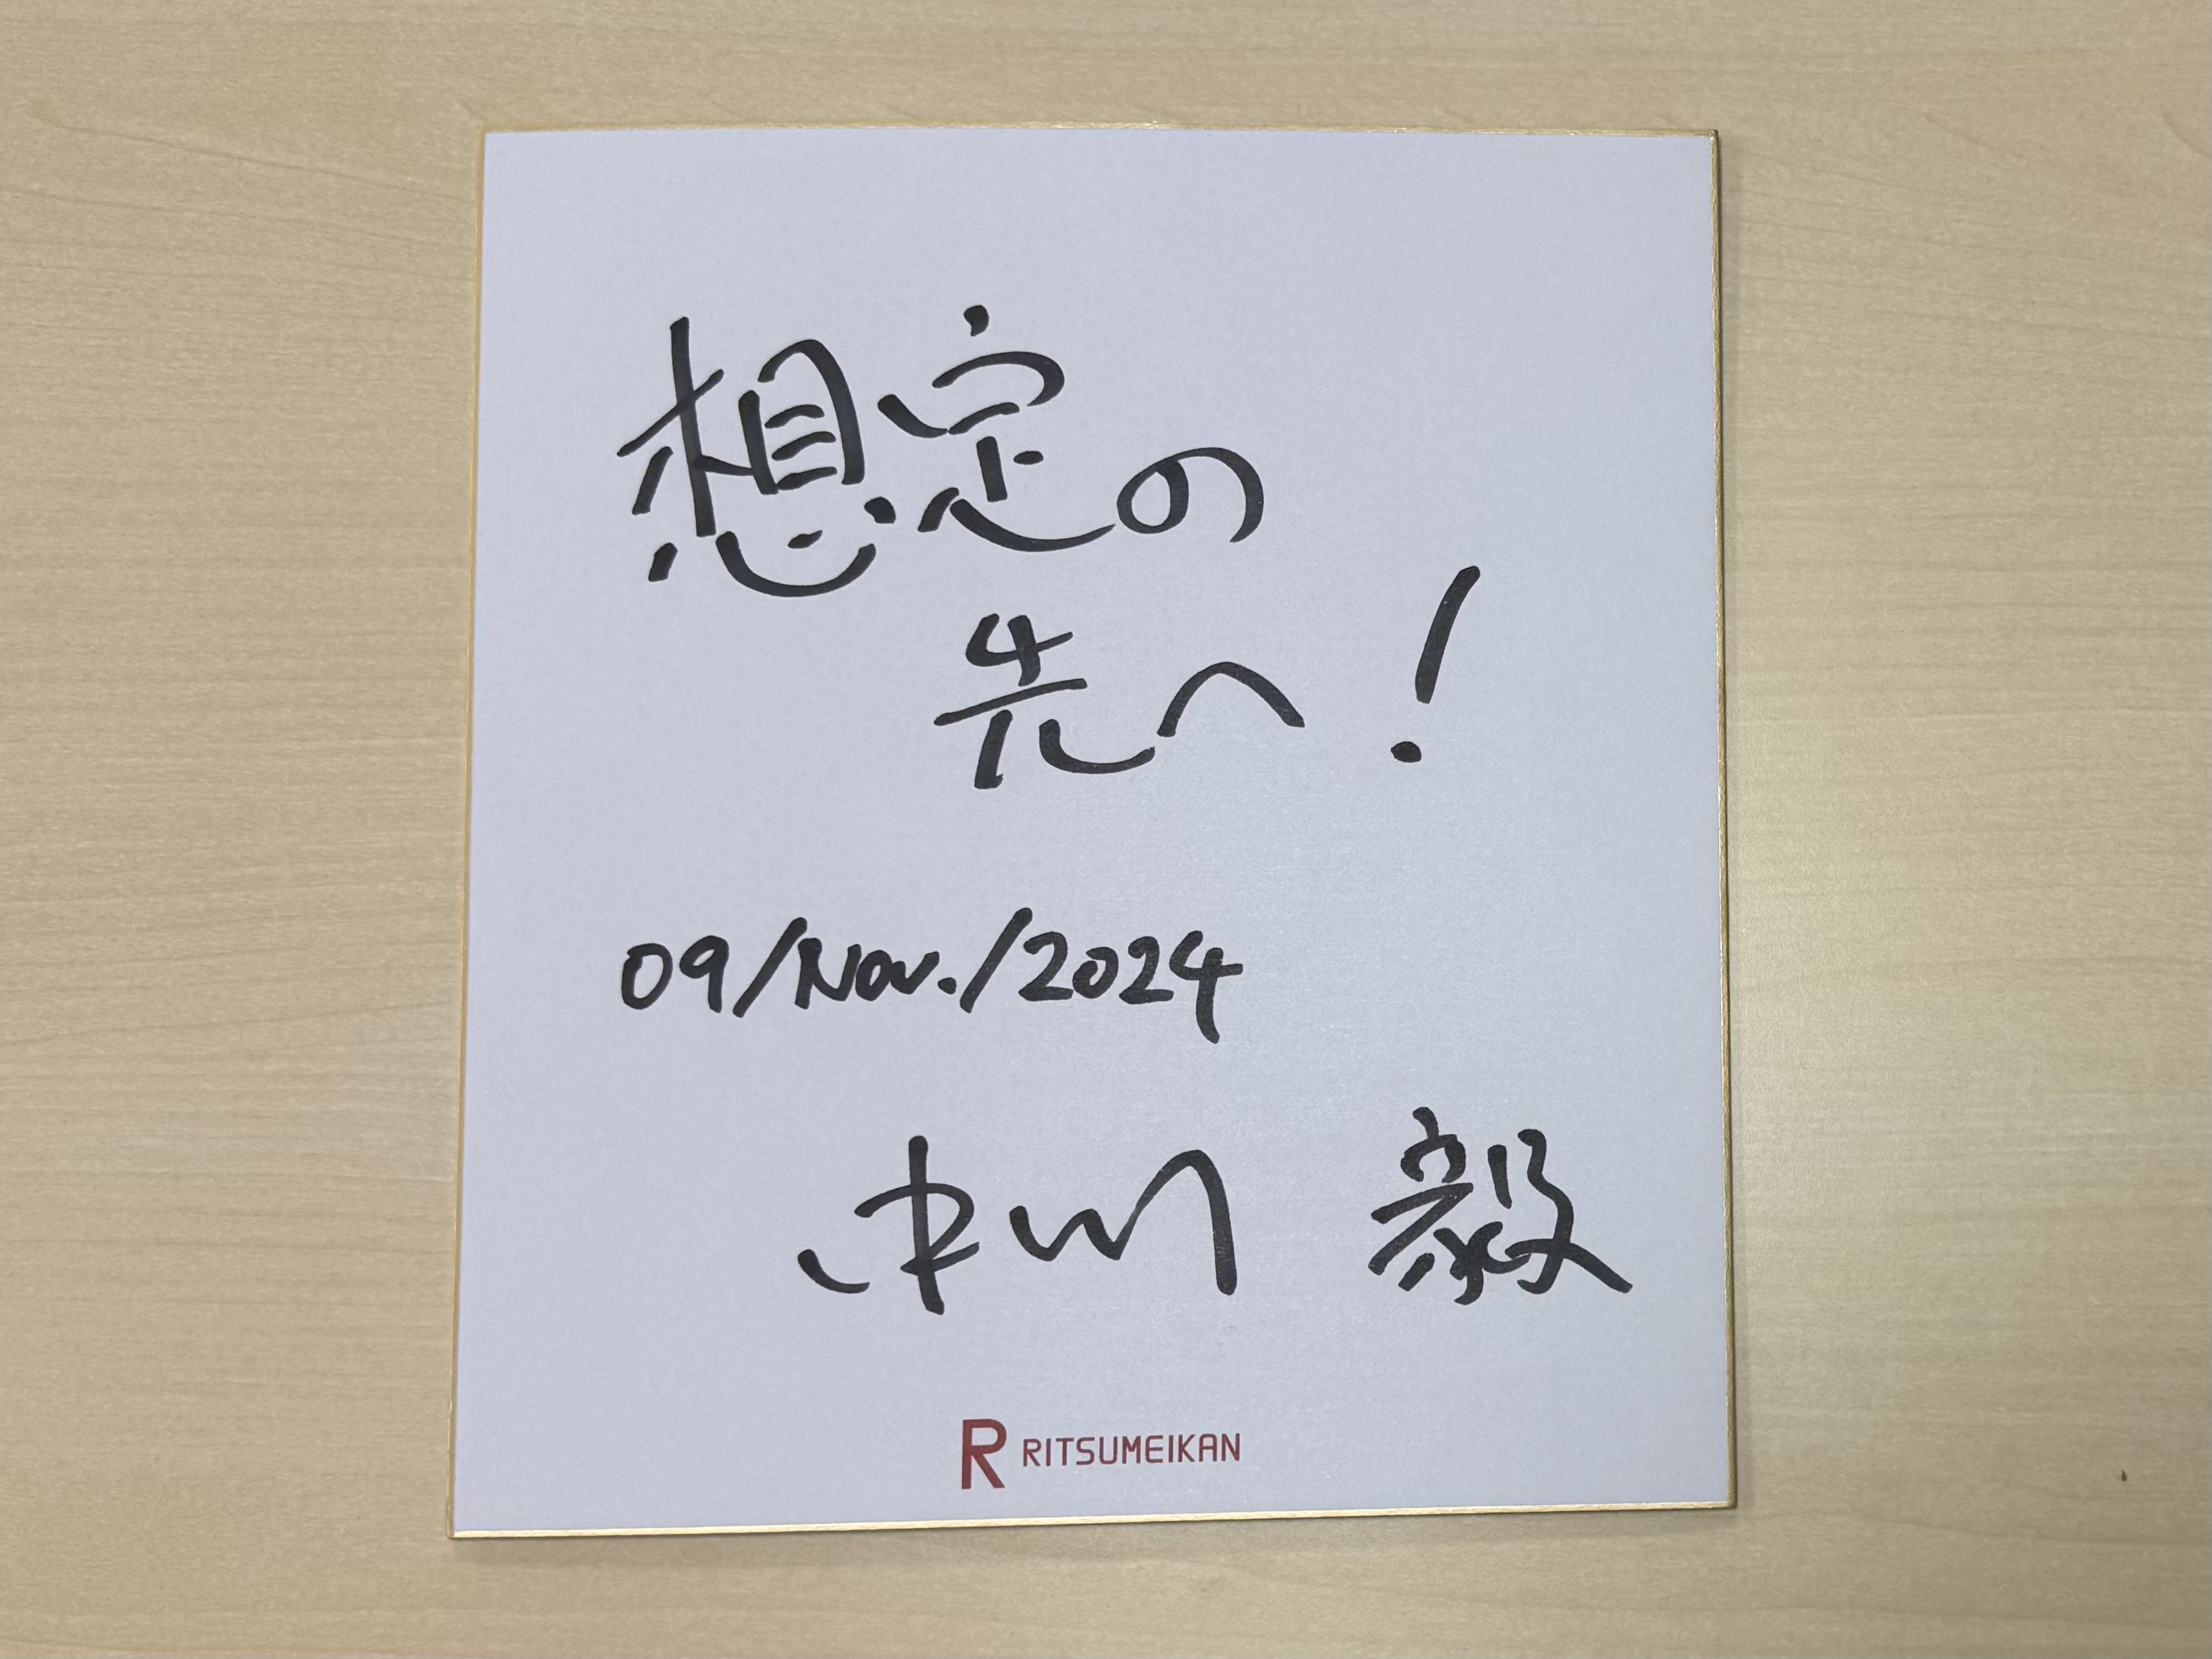 想定の
先へ!
09/Nov./2024
中川 毅
R RITSUMEIKAN